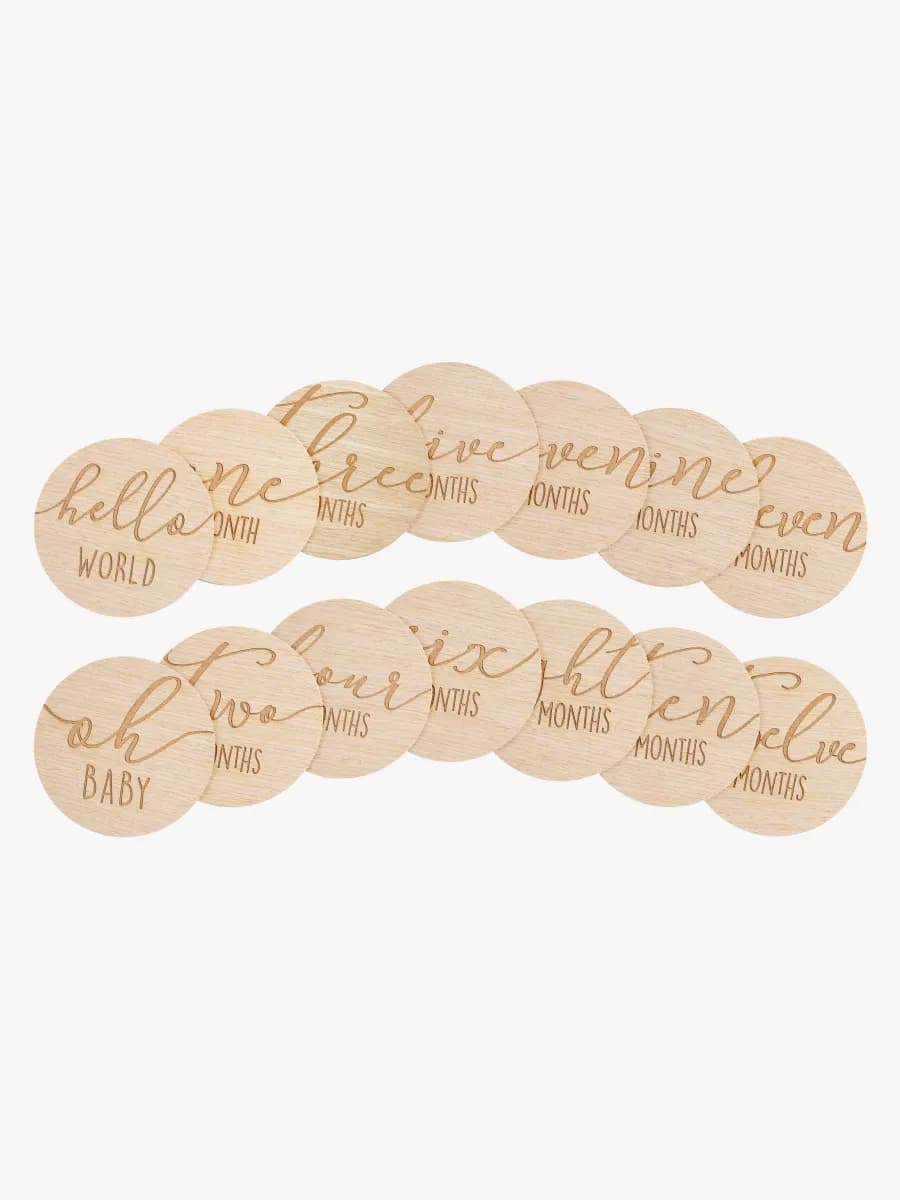 hello
WORLD
ne
ONTH
Three
ONTHS
ive
ONTHS
even
MONTHS
ine
MONTHS
even
MONTHS
oh
BABY
Two
ONTHS
our
ONTHS
ix
ONTHS
ght
MONTHS
Ten
MONTHS
elve
MONTHS